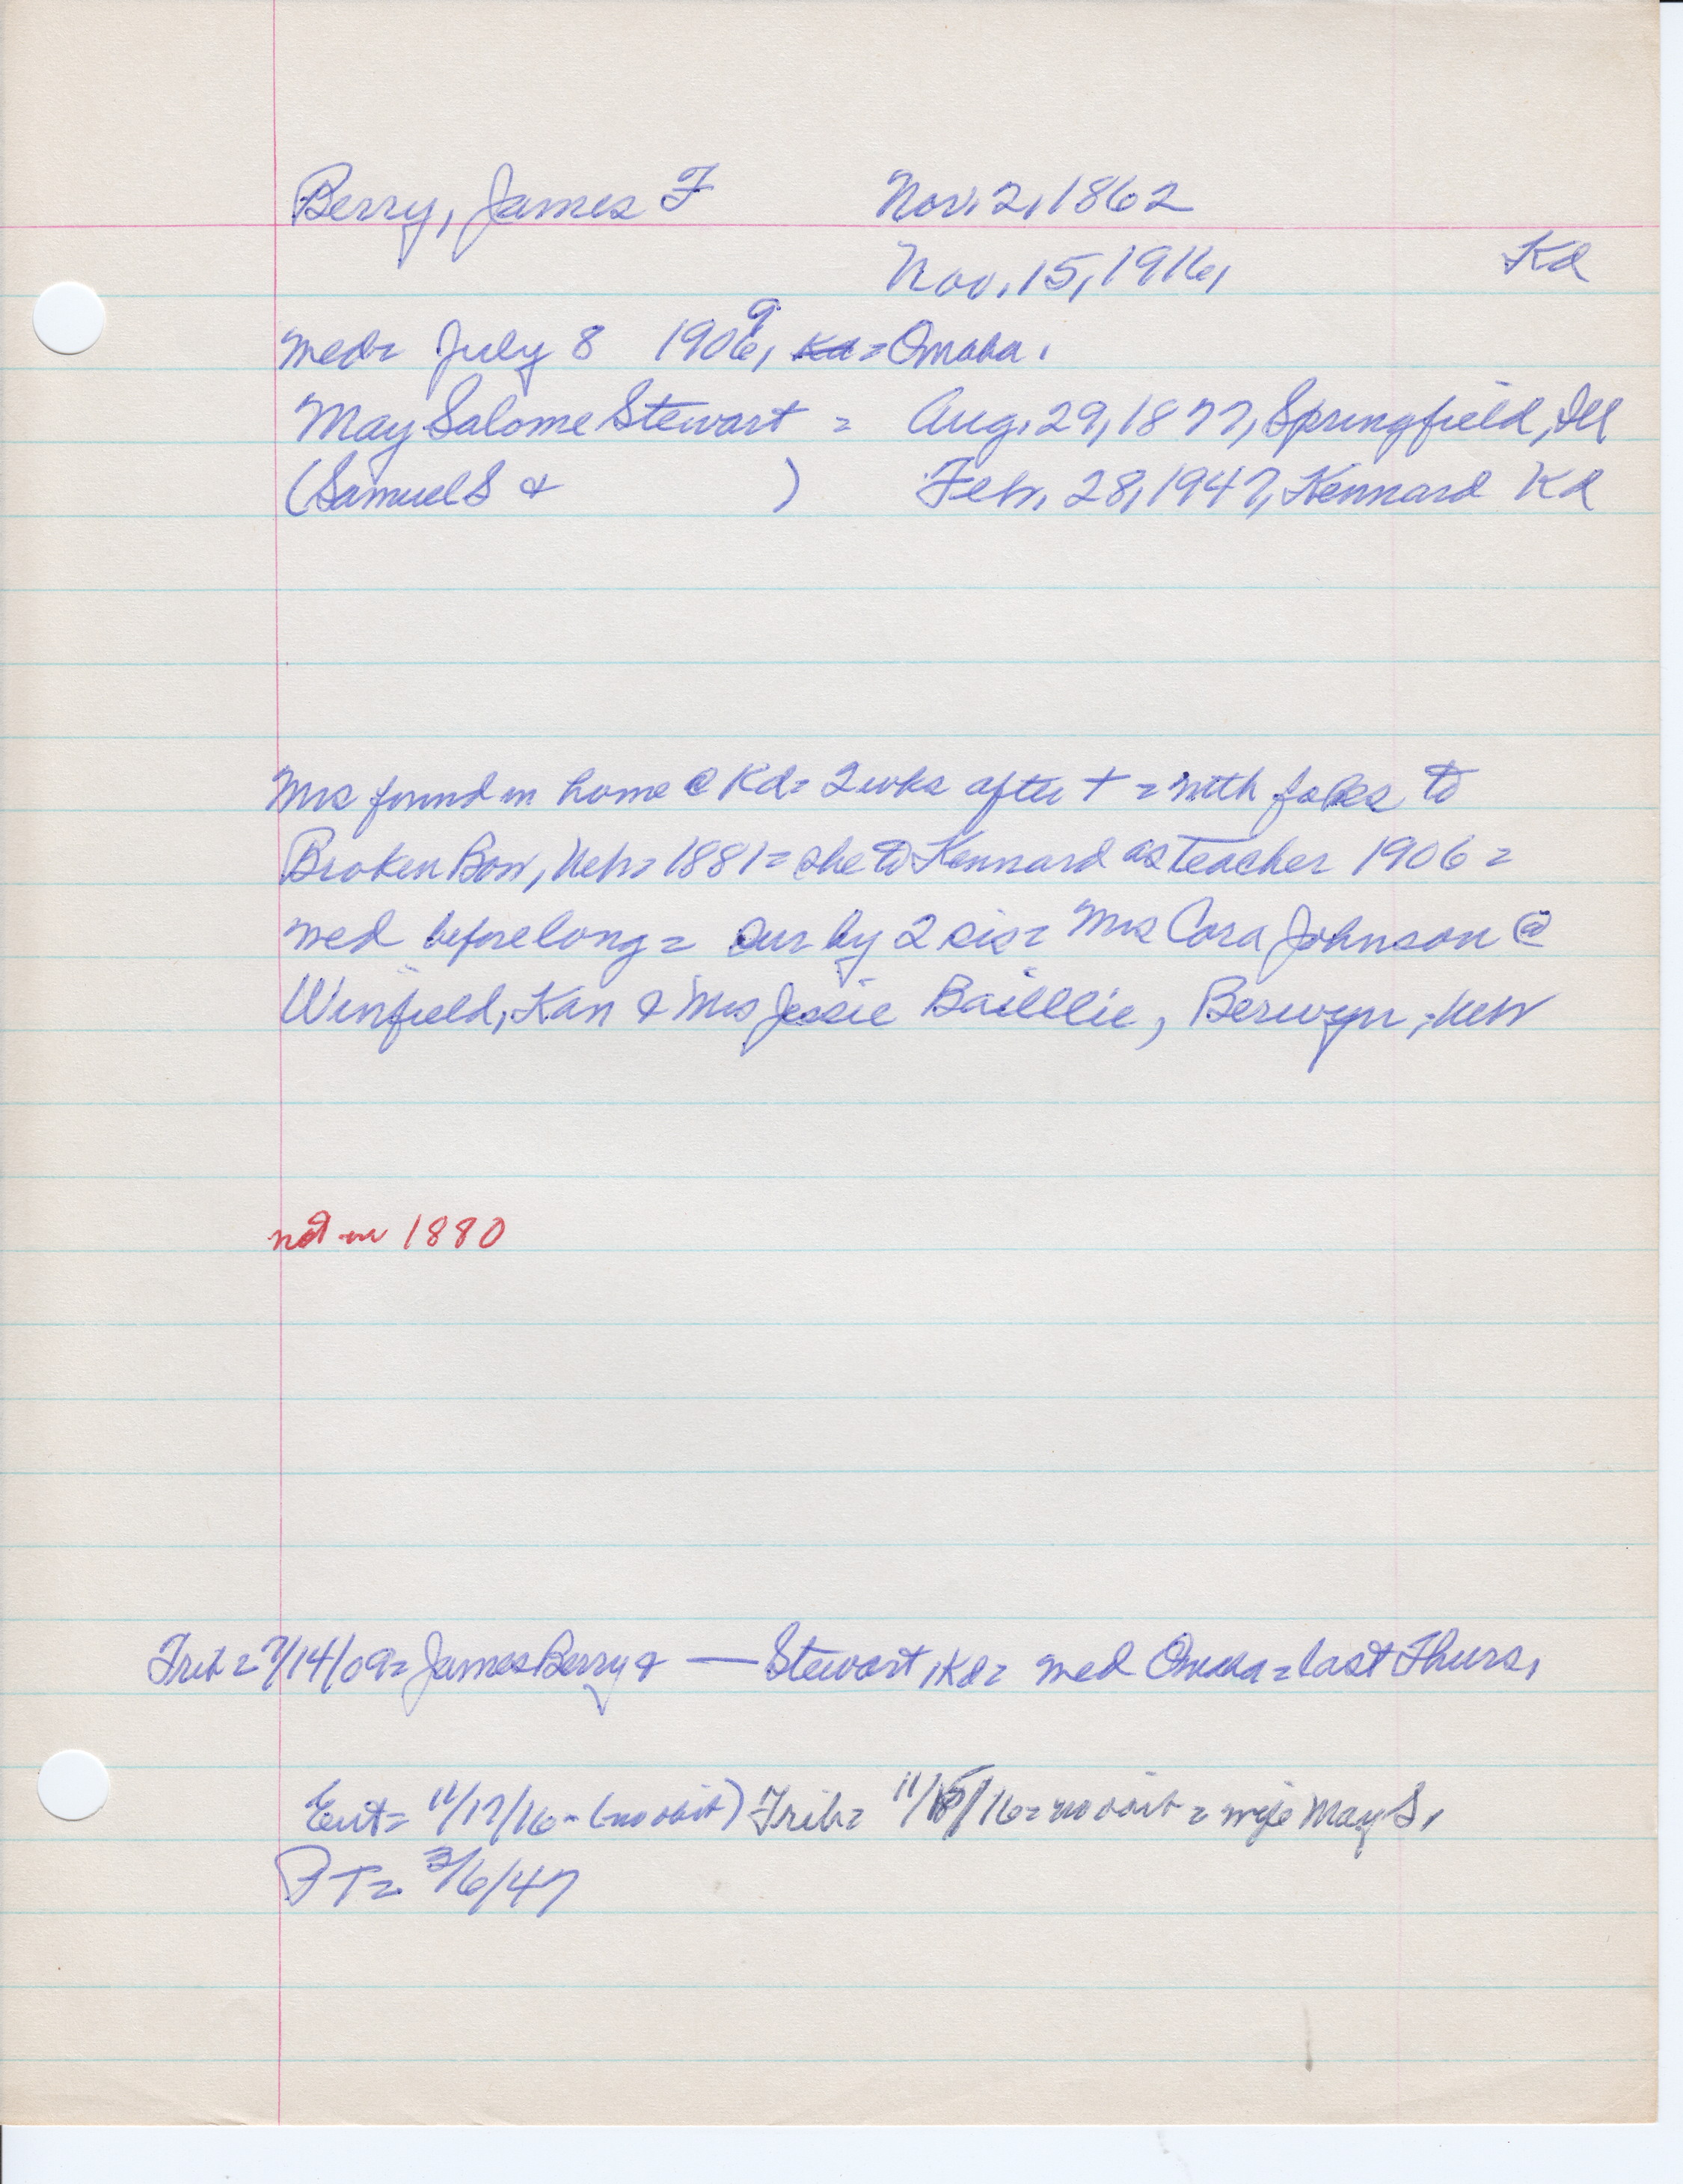 Berry, James F Nov. 2, 1862
Nov. 15, 1916, Kd
med= July 8 1906, 9 Kd = Omaha.
May Salome Stewart = Aug. 29, 1877, Springfield, Ill
(Samuel S & ) Feb. 28, 1947, Kennard Kd
Mrs found in home @ Kd= 2 wks after + = with folks to
Broken Bow, Neb= 1881= she to Kennard as teacher 1906 =
med before long = sur by 2 sis= Mrs Cora Johnson @
Winfield, Kan & Mrs Jessie Bailllie, Berwyn, Neb
not in 1880
Trib = 7/14/09= James Berry & — Stewart, Kd= med Omaha = last Thurs,
Ent= 11/17/16 - (no obit) Trib= 11/15/16 = no obit = wife May S,
PT= 3/6/47